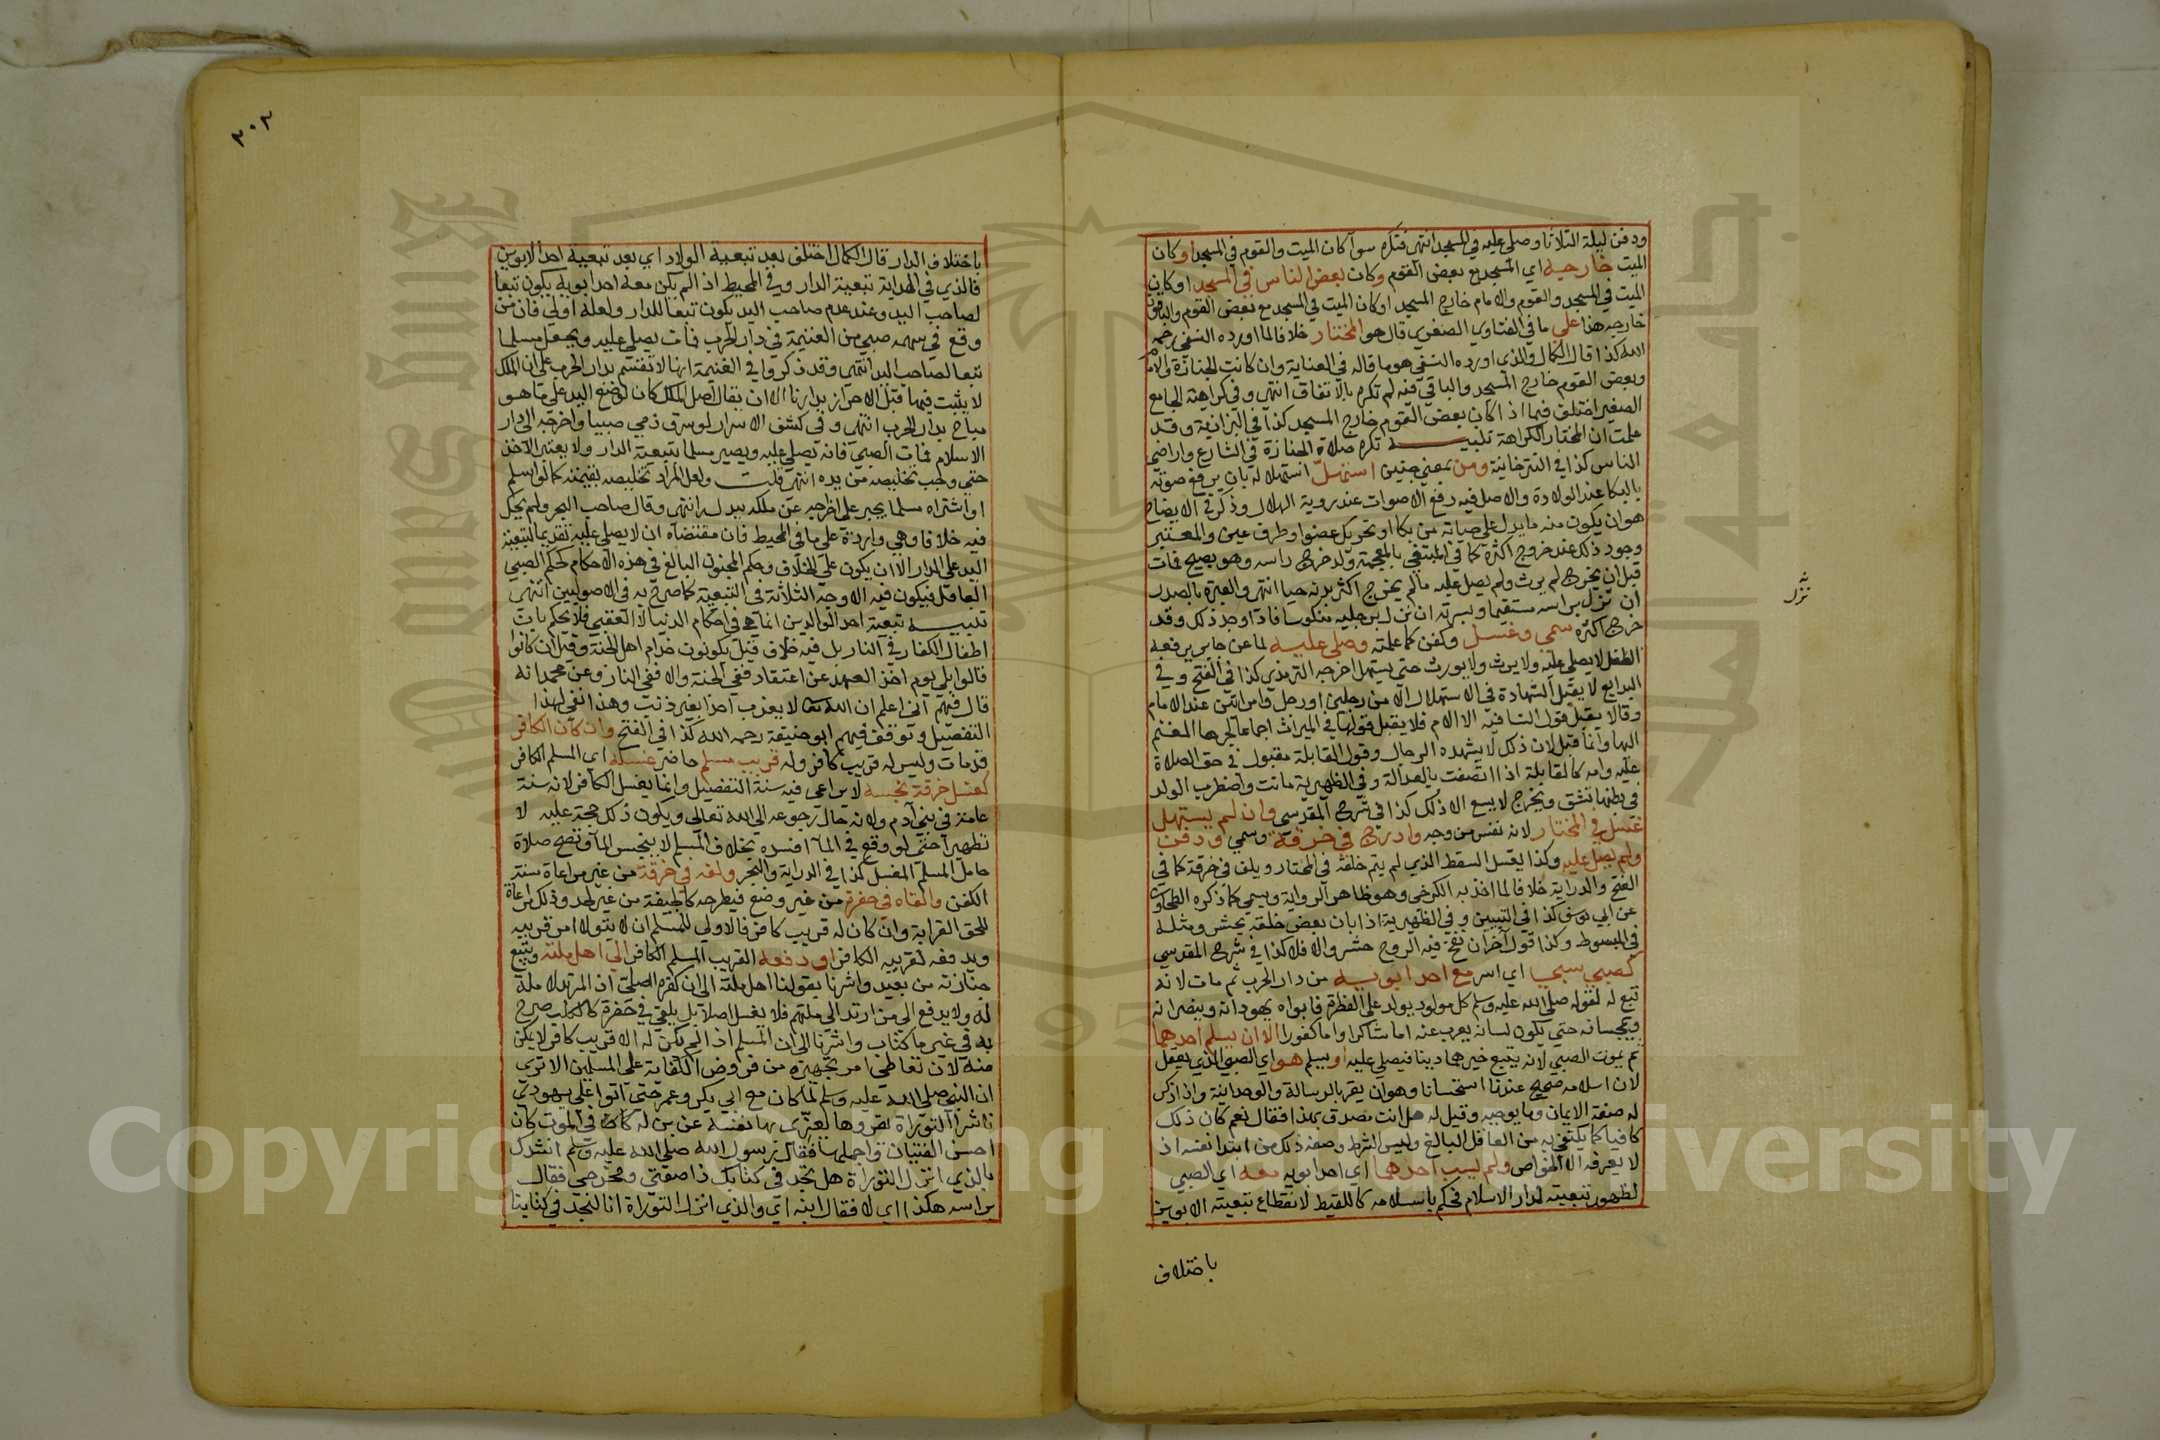 ودفن ليلة الثلاثا وصلي عليه في المسجد انتهى فتكره سوآ كان الميت والقوم في المسجد او كان
الميت خارجه اي المسجد مع بعض القوم وكان بعض الناس في المسجد او كان
الميت في المسجد والقوم والامام خارج المسجد او كان الميت في المسجد مع بعض القوم والباقون
خارجه هذا علي ما في الفتاوي الصغري قال هو المختار خلافا لما اورده النسفي رحمه
الله كذا قال الكمال والذي اورده النسفي هو ما قاله في العناية وان كانت الجنازة والامام
وبعض القوم خارج المسجد والباقي فيه لم تكره بالاتفاق انتهى وفي كراهة الجامع
الصغير اختلف فيما اذا كان بعض القوم خارج المسجد كذا في البزازية وقد
علمت ان المختار الكراهة تنبيه تكره صلاة الجنازة في الشارع واراضي
الناس كذا في التترخانية ومن بمعني جنين استهل استهلاله بان يرفع صوته
بالبكا عند الولادة والاصل فيه رفع الاصوات عند روية الهلال وذكر في الايضاح
هو ان يكون منه ما يدل علي حياته من بكا او تحريك عضو او طرف عين والمعتبر
وجود ذلك عند خروج اكثره كما في المبتغي بالمعجمة ولد خرج راسه وهو يصيح فمات
قبل ان يخرج لم يرث ولم يصل عليه ما لم يخرج اكثر بدنه حيا انتهى والعبرة بالصدر
ان نزل براسه مستقيما وبسرته ان نزل برجليه منكوسا فاذا وجد ذلك وقد
خرج اكثره سمي وغسل وكفن كما علمته وصلي عليه لما عن جابر يرفعه
الطفل لا يصلي عليه ولا يرث ولا يورث حتي يستهل اخرجه الترمذي كذا في الفتح وفي
البدايع لا يقبل الشهادة في الاستهلال الا من رجلين او رجل وامراتين عند الامام
وقالا يقبل قول النسا فيه الا الام فلا يقبل قولها في الميراث اجماعا لجرها المغنم
اليها وانما قبل لان ذلك لا يشهده الرجال وقول القابلة مقبول في حق الصلاة
عليه وامه كالقابلة اذا اتصفت بالعدالة وفي الظهيرية ماتت واضطرب الولد
في بطنها تشق ويخرج لا يسع الا ذلك كذا في شرح المقدسي وان لم يستهل
غسل في المختار لانه نفس من وجه وادرج في خرقة وسمي ودفن
ولم يصل عليه وكذا يغسل السقط الذي لم يتم خلقه في المختار ويلف في خرقة كما في
الفتح والدراية خلافا لما اخذ به الكرخي وهو ظاهر الرواية ويسمي كما ذكره الطحاوي
عن ابي يوسف كذا في التبيين وفي الظهيرية اذا بان بعض خلقه يحشر ومثله
في المبسوط وكذا قول آخر ان نفخ فيه الروح حشر والا فلا كذا في شرح المقدسي
كصبي سبي اي اسر مع احد ابويه من دار الحرب ثم مات لانه
تبع له لقوله صلي الله عليه وسلم كل مولود يولد علي الفطرة فابواه يهودانه وينصرانه
ويمجسانه حتي يكون لسانه يعرب عنه اما شاكرا واما كفورا الا ان يسلم احدهما
ثم يموت الصبي لانه يتبع خيرهما دينا فيصلي عليه او يسلم هو اي الصبي الذي يعقل
لان اسلامه صحيح عندنا استحسانا وهو ان يقر بالرسالة والوحدانية واذا ذكر
له صفة الايمان وما يوجبه وقيل له هل انت مصدق بهذا فقال نعم كان ذلك
كافيا كما يكتفي به من العاقل البالغ وليس الشرط وصفه ذلك من ابتدا نفسه اذ
لا يعرفه الا الخواص ولم يسب احدهما اي احد ابويه معه اي الصبي
لظهور تبعيته لدار الاسلام فحكم باسلامه كاللقيط لانقطاع تبعيته الابوين
باختلاف
نزل
٣٠٣
باختلاف الدار قال الكمال اختلف بعد تبعية الولاد اي بعد تبعية احد الابوين
فالذي في الهداية تبعية الدار وفي المحيط اذا لم يكن معه احد ابويه يكون تبعا
لصاحب اليد وعند عدم صاحب اليد يكون تبعا للدار ولعله اولي فان من
وقع في سهمه صبي من الغنيمة في دار الحرب فمات يصلي عليه ويجعل مسلما
تبعا لصاحب اليد انتهى وقد ذكروا في الغنيمة انها لا تقسم بدار الحرب علي ان الملك
لا يثبت فيها قبل الاحراز بدارنا الا ان يقال اصل الملك كان لوضع اليد علي ما هو
مباح بدار الحرب انتهى وفي كشف الاسرار لو سرق ذمي صبيا واخرجه الي دار
الاسلام فمات الصبي فانه يصلي عليه ويصير مسلما بتبعية الدار ولا يعتبر الآخذ
حتي وجب تخليصه من يده انتهى قلت ولعل المراد تخليصه بقيمته كما لو اسلم
او اشتراه مسلما يجبر علي اخرجه عن ملكه ببدل انتهى وقال صاحب البحر ولم يحك
فيه خلافا وهي واردة علي ما في المحيط فان مقتضاه ان لا يصلي عليه تقديما لتبعية
اليد علي الدار الا ان يكون علي الخلاف وحكم المجنون البالغ في هذه الاحكام كحكم الصبي
العاقل فيكون فيه الاوجه الثلاثة في التبعية كما صرح به في الاصوليين انتهى
تنبيه تبعية احد الوالدين انما هي في احكام الدنيا لا العقبي فلا يحكم بان
اطفال الكفار في النار بل فيه خلاف قيل يكونون خدام اهل الجنة وقيل ان كانوا
قالوا بلي يوم اخذ العهد عن اعتقاد ففي الجنة والا ففي النار وعن محمد انه
قال فيهم اني اعلم ان الله لا يعذب احدا بغير ذنب وهذا نفي لهذا
التفصيل وتوقف فيهم ابو حنيفة رحمه الله كذا في الفتح وان كان الكافر
قد مات وليس له قريب كافر وله قريب مسلم حاضر غسله اي المسلم الكافر
كغسل خرقة نجسة لا يراعي فيه سنة التفصيل وانما يغسل الكافر لانه سنة
عامة في بني آدم ولانه حال رجوعه الي الله تعالي ويكون ذلك حجة عليه لا
تطهيرا حتي لو وقع في الماء افسده بخلاف المسلم لا ينجس الماء وتصح صلاة
حامل المسلم المغسل كذا في الدراية والبحر ولفه في خرقة من غير مراعاة سنة
الكفن والقاه في حفرة من غير وضع فيطرحه كالجيفة من غير لحد وذلك مراعاة
للحق القرابة وان كان له قريب كافر فالاولي للمسلم ان لا يتولا امر قريبه
ويدفعه لقريبه الكافر او دفعه القريب المسلم الكافر الي اهل ملته ويتبع
جنازته من بعيد واشرنا بقولنا اهل ملته الي ان كفره اصلي اذ المرتد لا ملة
له ولا يدفع الي من ارتد الي ملتهم فلا يغسل اصلا بل يلقي في حفرة كالكلب صرح
به في غير ما كتاب واشرنا الي ان المسلم اذا لم يكن له الا قريب كافر لا يمكن
منه لان تعاطي امر تجهيزه من فروض الكفاية علي المسلمين الا تري
ان النبي صلي الله عليه وسلم لما كان مع ابي بكر وعمر حتي اتوا علي يهودي
ناشرا التوراة يقروها يعزي بها نفسه عن بن له كان في الموت كان
احسن الفتيان واجملها فقال رسول الله صلي الله عليه وسلم انشدك
بالذي انزل التوراة هل تجد في كتابك ذا صفتي ومخرجي فقال
براسه هكذا اي لا فقال ابنه اي والذي انزل التوراة انا لنجد في كتابنا
Copyright © King Saud University